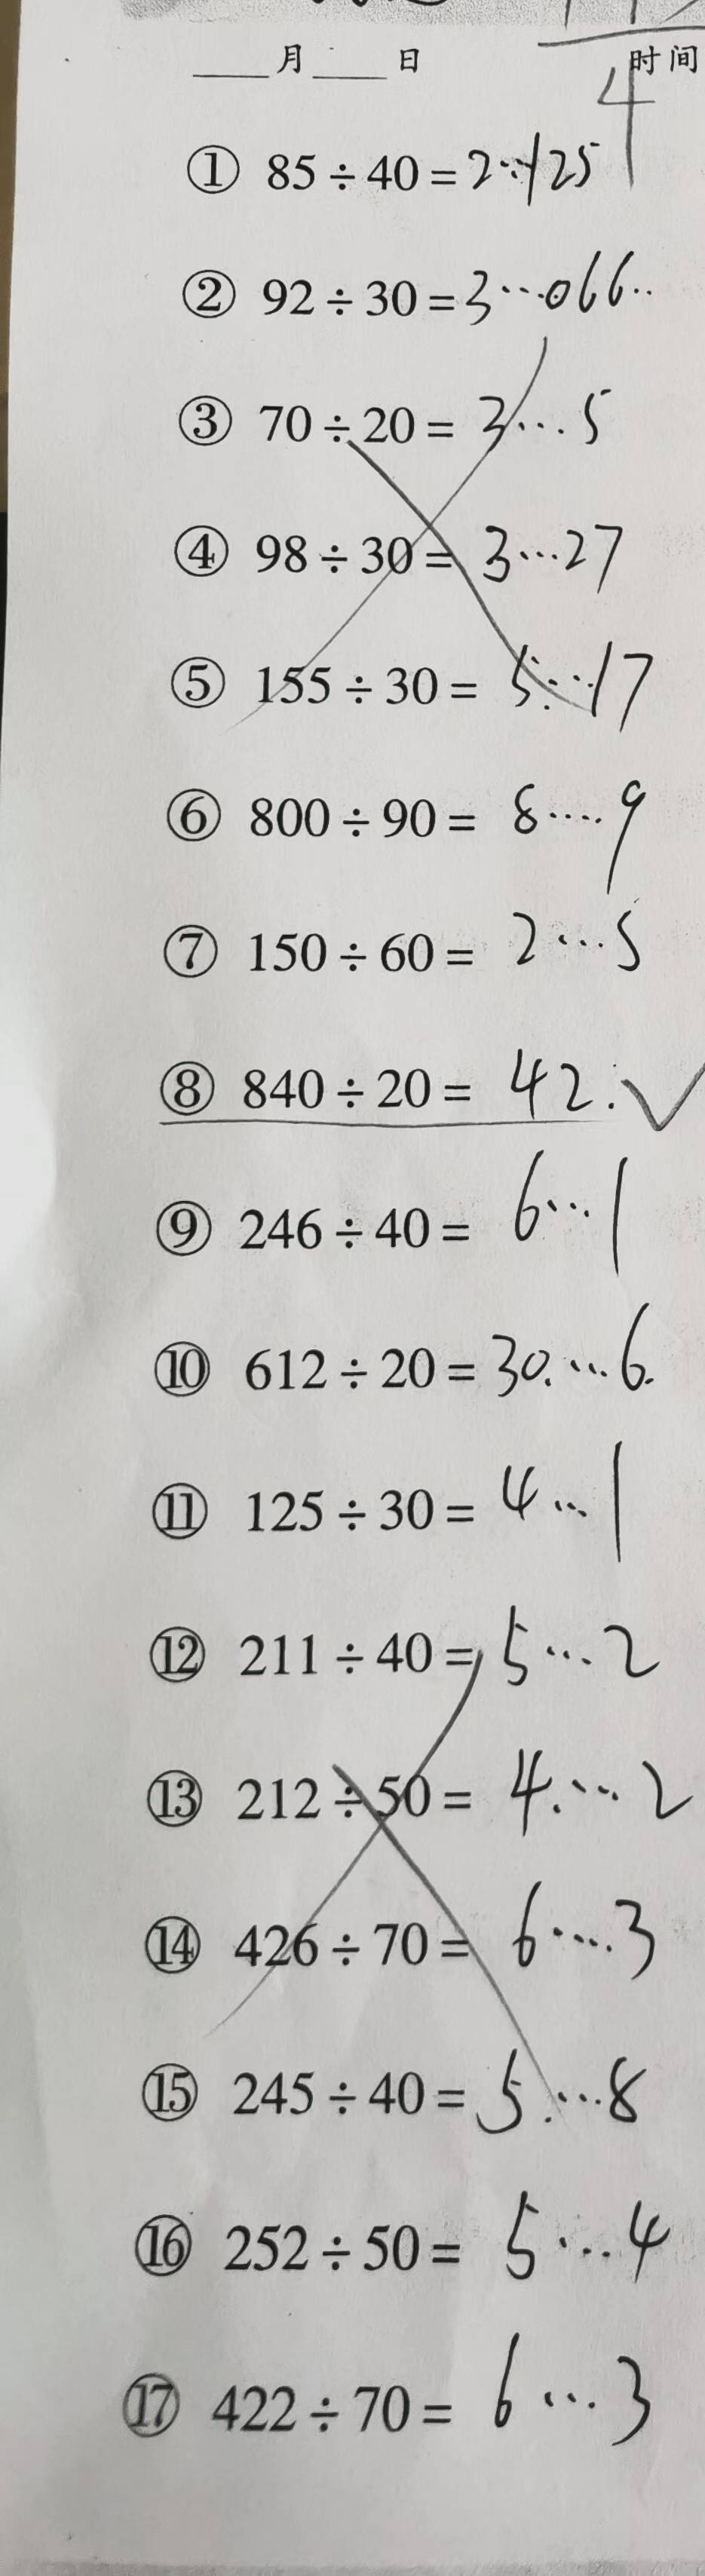 月 日 时间
4
① 85÷40=2…125
② 92÷30=3…066..
③ 70÷20=3…5
④ 98÷30=3…27
⑤ 155÷30=5…17
⑥ 800÷90=8…9
⑦ 150÷60=2…5
⑧ 840÷20=42.
⑨ 246÷40=6…1
⑩ 612÷20=30.…6.
⑪ 125÷30=4…1
⑫ 211÷40=5…2
⑬ 212÷50=4.…2
⑭ 426÷70=6…3
⑮ 245÷40=5…8
⑯ 252÷50=5…4
⑰ 422÷70=6…3